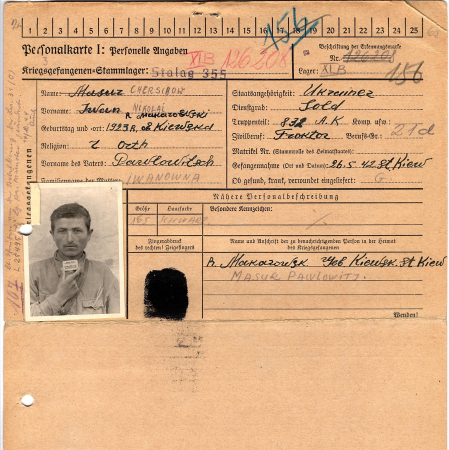 1 2 3 4 5 6 7 8 9 10 11 12 13 14 15 16 17 18 19 20 21 22 23 24 25
156
Personalkarte I: Personelle Angaben
XIB 126208
Beschriftung der Erkennungsmarke
Nr. 126208
Kriegsgefangenen-Stammlager: Stalag 355
Lager: XIB
156
Name: Masur
Staatsangehörigkeit: Ukrainer
Vorname: Iwan NIKOLAI
Dienstgrad: Sold
R. Makarowski
Truppenteil: 838 A.K. Komp. usw.:
Geburtstag und -ort: 1923
Zivilberuf: Traktor Berufs-Gr.: 21d
Religion: Orth
Matrikel Nr. (Stammrolle des Heimatstaates):
Vorname des Vaters: Pawlowitsch
Gefangennahme (Ort und Datum): 26.5.42 St Kiew
Familienname der Mutter: IWANOWNA
Ob gesund, krank, verwundet eingeliefert: G
Nähere Personalbeschreibung
Größe Haarfarbe Besondere Kennzeichen:
165 SCHWARZ
Fingerabdruck
des rechten! Zeigefingers
Name und Anschrift der zu benachrichtigenden Person in der Heimat
des Kriegsgefangenen
R. Makarowsk Geb. Kiewsk. St Kiew
MASUR PAWLOWITZ
Wenden!